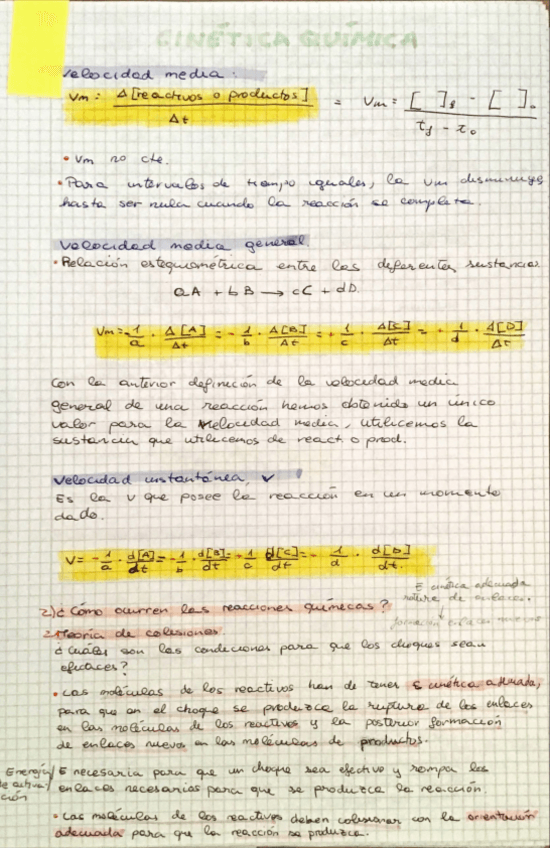 CINÉTICA QUÍMICA
Velocidad media:
Vm: Δ[reactivos o productos] / Δt = Vm = ([ ]f - [ ]o) / (tf - to)
• Vm no cte.
• Para intervalos de tiempo iguales, la Vm disminuye
hasta ser nula cuando la reacción se completa.
Velocidad media general.
• Relación estequiométrica entre las diferentes sustancias
aA + bB → cC + dD.
Vm = - 1/a · Δ[A]/Δt = - 1/b · Δ[B]/Δt = + 1/c · Δ[C]/Δt = + 1/d · Δ[D]/Δt
Con la anterior definición de la velocidad media
general de una reacción hemos obtenido un único
valor para la velocidad media, utilicemos la
sustancia que utilicemos de react. o prod.
Velocidad instantánea, v
Es la v que posee la reacción en un momento
dado.
V = - 1/a · d[A]/dt = - 1/b · d[B]/dt = 1/c d[C]/dt = 1/d · d[D]/dt.
E cinética adecuada
rotura de enlaces.
↓
formación enlaces nuevos
2) ¿Cómo ocurren las reacciones químicas?
Teoría de colisiones.
¿Cuáles son las condiciones para que los choques sean
eficaces?
• Las moléculas de los reactivos han de tener E cinética adecuada,
para que en el choque se produzca la ruptura de los enlaces
en las moléculas de los reactivos y la posterior formación
de enlaces nuevos en las moléculas de productos.
Energía de activación
E necesaria para que un choque sea efectivo y rompa los
enlaces necesarios para que se produzca la reacción.
• Las moléculas de los reactivos deben colisionar con la orientación
adecuada para que la reacción se produzca.